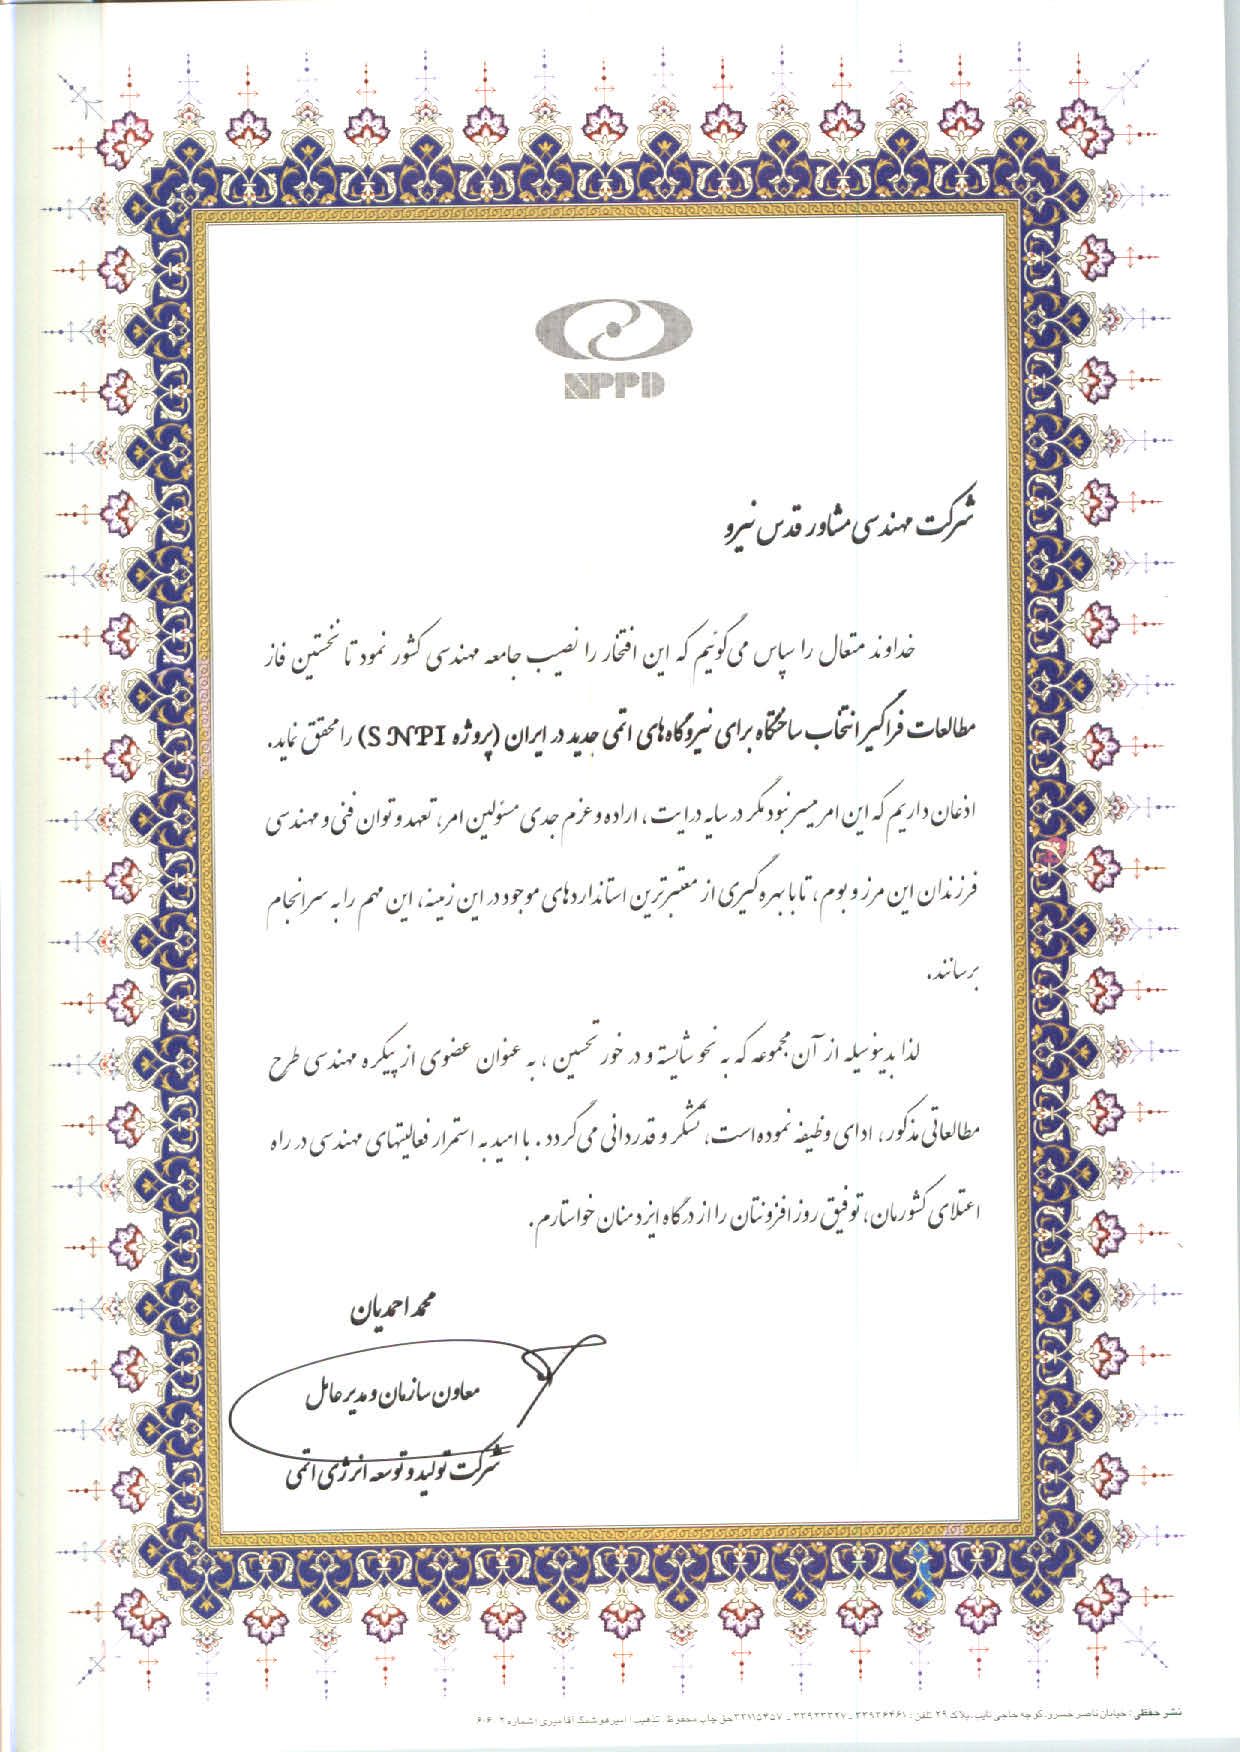 NPPD
شرکت مهندسی مشاور قدس نیرو
خداوند متعال را سپاس می‌گوئیم که این افتخار را نصیب جامعه مهندسی کشور نمود تا نخستین فاز
مطالعات فراگیر انتخاب ساختگاه برای نیروگاه‌های اتمی جدید در ایران (پروژه SNPI) را محقق نماید.
اذعان داریم که این امر میسر نبود مگر در سایه درایت، اراده و عزم جدی مسئولین امر، تعهد و توان فنی و مهندسی
فرزندان این مرز و بوم، تا با بهره گیری از معتبرترین استانداردهای موجود در این زمینه، این مهم را به سرانجام
برسانند.
لذا بدینوسیله از آن مجموعه که به نحو شایسته و در خور تحسین، به عنوان عضوی از پیکره مهندسی طرح
مطالعاتی مذکور، ادای وظیفه نموده است، تشکر و قدردانی می‌گردد. با امید به استمرار فعالیتهای مهندسی در راه
اعتلای کشورمان، توفیق روز افزونتان را از درگاه ایزد منان خواستارم.
محمد احمدیان
معاون سازمان و مدیر عامل
شرکت تولید و توسعه انرژی اتمی
نشر حفظی : خیابان ناصر خسرو، کوچه حاجی نایب، پلاک ۲۹ تلفن : ۳۳۹۲۶۴۶۱ - ۳۳۹۲۳۳۲۷ - ۳۳۱۱۵۴۵۷ حق چاپ محفوظ تذهیب : امیرهوشنگ آقامیری شماره